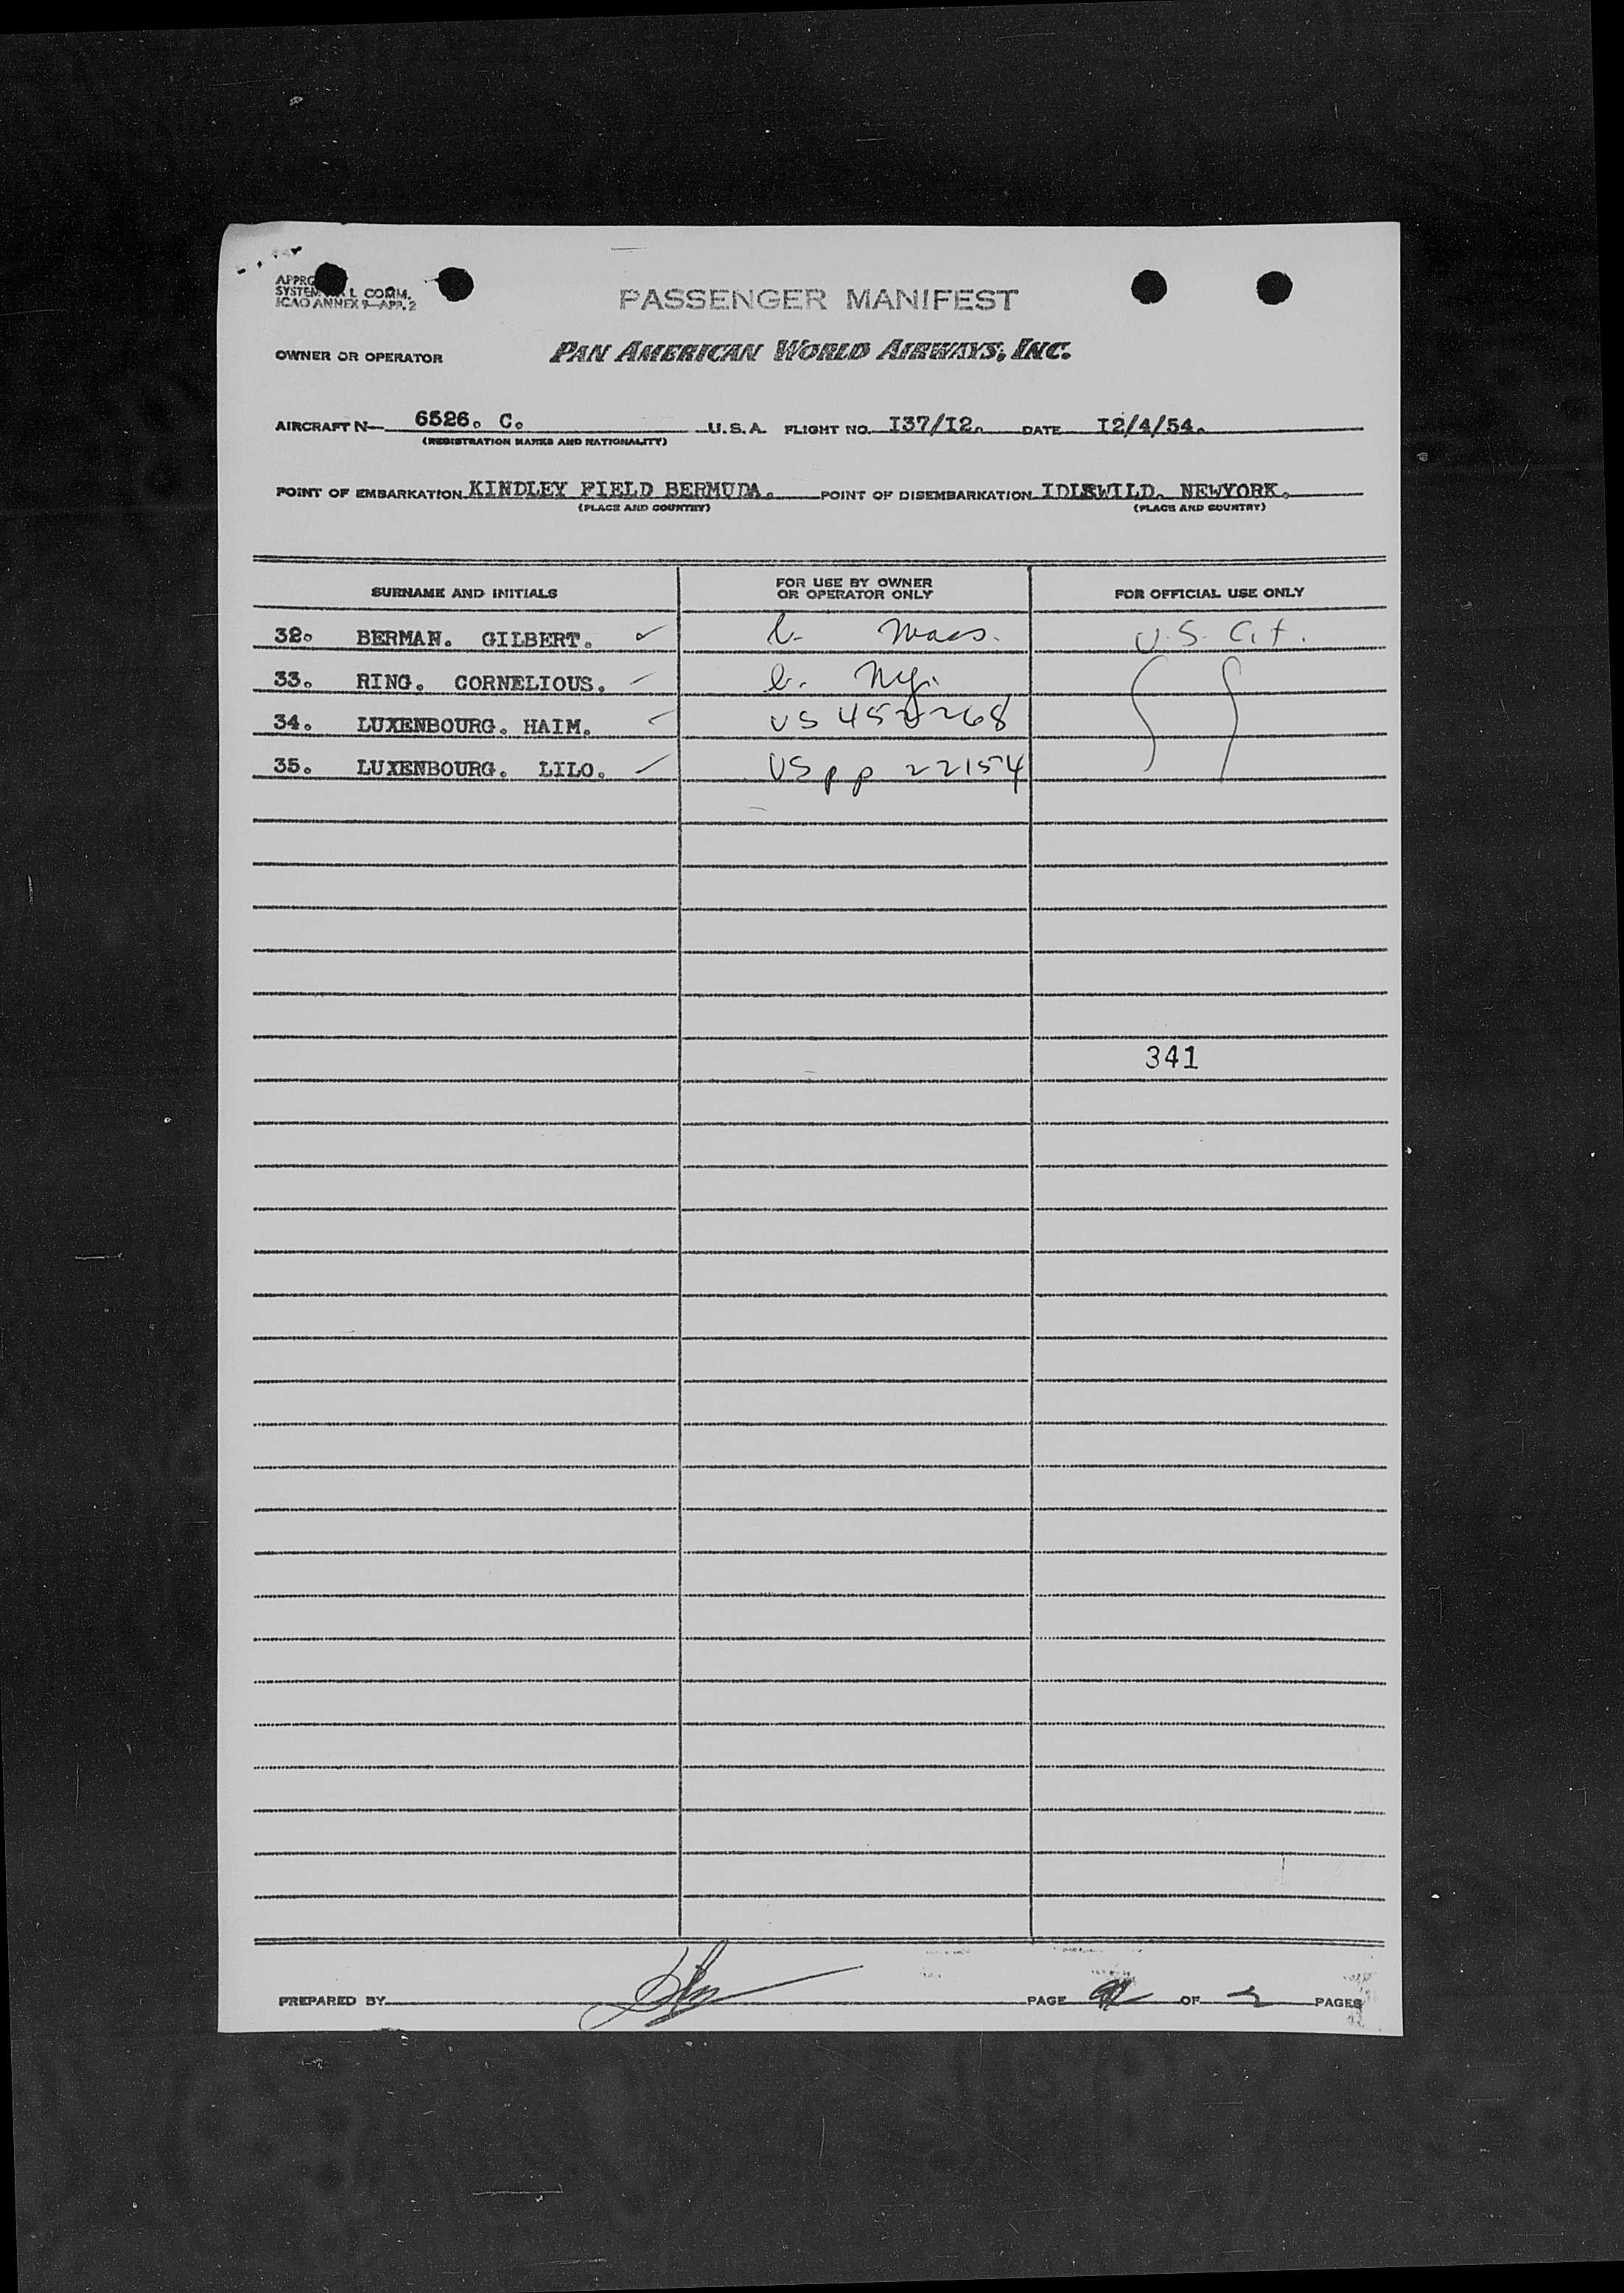 SYSTEM L COMM.
ICAO ANNEX 9—APP. 2
PASSENGER MANIFEST
OWNER OR OPERATOR PAN AMERICAN WORLD AIRWAYS, INC.
AIRCRAFT N— 6526. C. U.S.A. FLIGHT NO. I37/I2. DATE I2/4/54.
(REGISTRATION MARKS AND NATIONALITY)
POINT OF EMBARKATION KINDLEY FIELD BERMUDA. POINT OF DISEMBARKATION IDLEWILD. NEWYORK.
(PLACE AND COUNTRY) (PLACE AND COUNTRY)
SURNAME AND INITIALS FOR USE BY OWNER OR OPERATOR ONLY FOR OFFICIAL USE ONLY
32. BERMAN. GILBERT. ✓ b. Mass. U.S. Cit.
33. RING. CORNELIOUS. ✓ b. Ny.
34. LUXENBOURG. HAIM. ✓ US 452268
35. LUXENBOURG. LILO. ✓ US pp 22154
341
PREPARED BY PAGE OF 2 PAGES